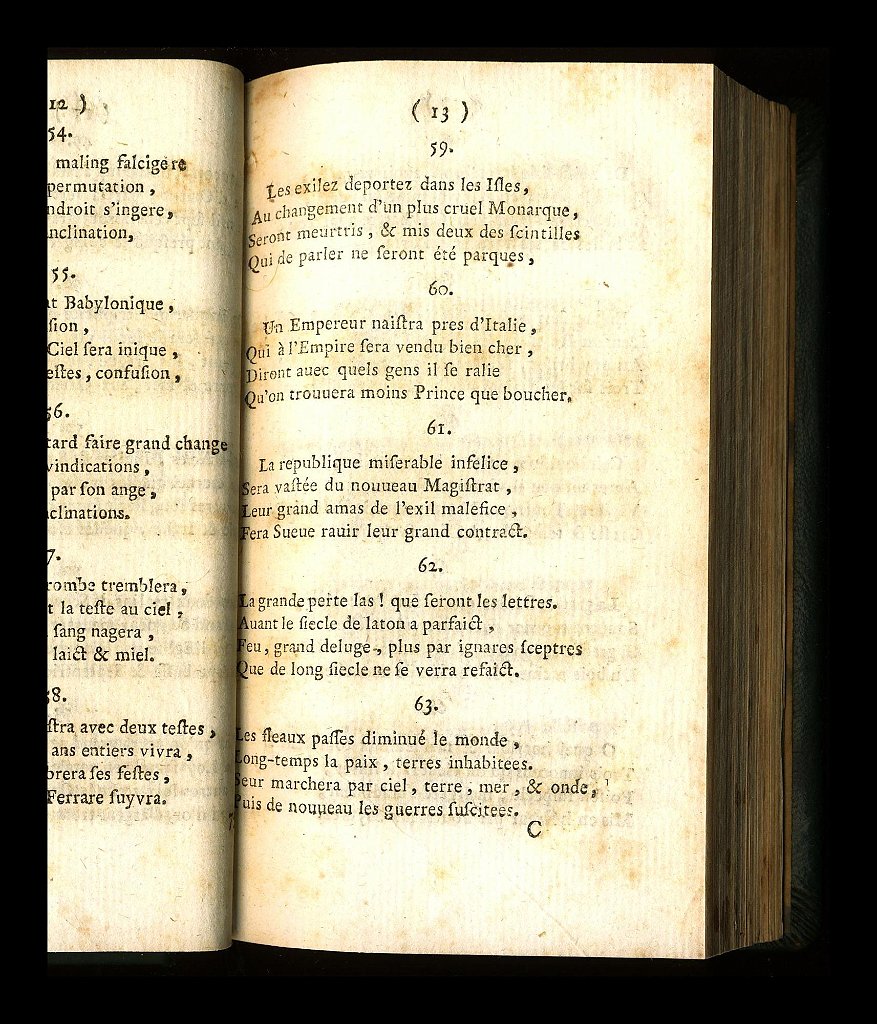 12 )
54.
maling falcigere
permutation ,
ndroit s'ingere,
nclination,
55.
t Babylonique ,
ſion ,
Ciel ſera inique ,
eſtes , confuſion ,
56.
tard faire grand change
vindications ,
par ſon ange ,
clinations.
7.
rombe tremblera ,
t la teſte au ciel ,
ſang nagera ,
laict & miel.
58.
ſtra avec deux teſtes ,
ans entiers vivra ,
brera ſes feſtes ,
Ferrare ſuyvra.
( 13 )
59.
Les exilez deportez dans les Iſles,
Au changement d'un plus cruel Monarque,
Seront meurtris , & mis deux des ſcintilles
Qui de parler ne ſeront été parques ,
60.
Un Empereur naiſtra pres d'Italie ,
Qui à l'Empire ſera vendu bien cher ,
Diront auec quels gens il ſe ralie
Qu'on trouuera moins Prince que boucher.
61.
La republique miſerable infelice ,
Sera vaſtée du nouueau Magiſtrat ,
Leur grand amas de l'exil malefice ,
Fera Sueue rauir leur grand contract.
62.
La grande perte las ! que ſeront les lettres.
Auant le ſiecle de laton a parfaict ,
Feu, grand deluge, plus par ignares ſceptres
Que de long ſiecle ne ſe verra refaict.
63.
Les fleaux paſſes diminué le monde ,
Long-temps la paix , terres inhabitees.
Seur marchera par ciel, terre, mer, & onde,
Puis de nouueau les guerres ſuſcitees.
C